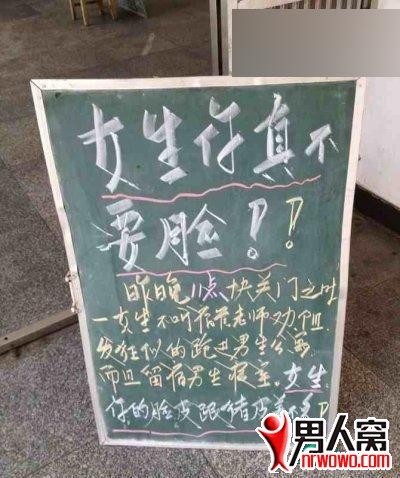 女生你真不
要脸！！
昨晚11点快关门之时
一女生不听宿管老师劝阻
发狂似的跑进男生公寓
而且留宿男生寝室。女生
你的脸皮跟猪皮
男人窝
nrwowo.com